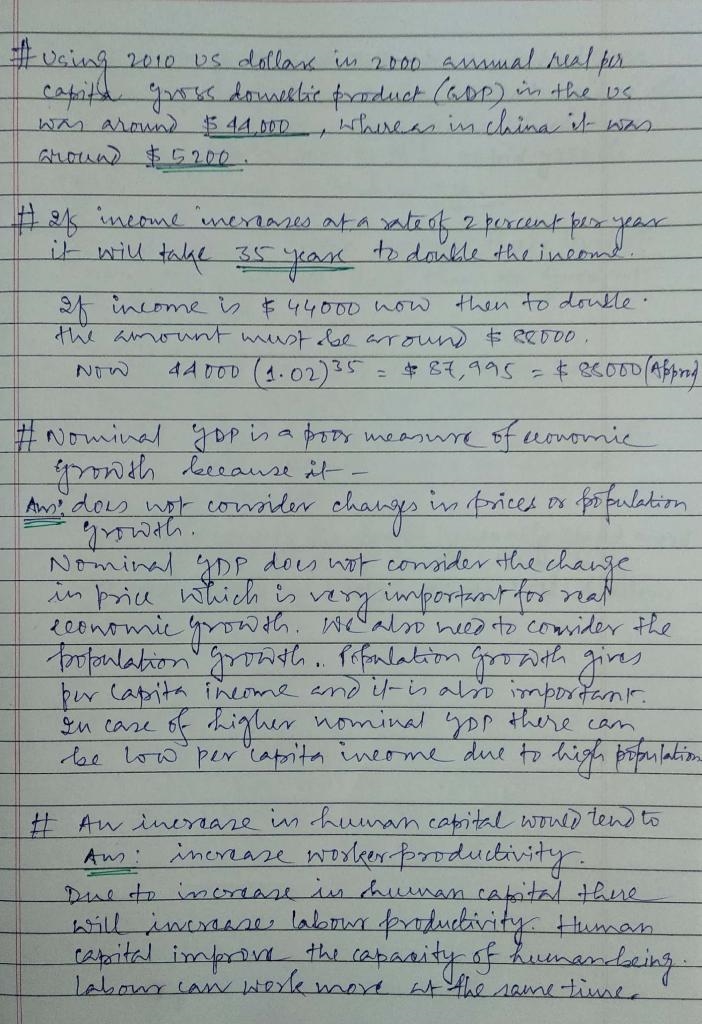 # Using 2010 US dollars in 2000 annual real per
capita gross domestic product (GDP) in the US
was around $ 44,000, whereas in china it was
around $ 5200.
# If income increases at a rate of 2 percent per year
it will take 35 years to double the income.
If income is $ 44000 now then to double
the amount must be around $ 88000.
Now 44000 (1.02)35 = $ 87,995 = $ 88000 (Approx)
# Nominal GDP is a poor measure of economic
growth because it -
Ans: does not consider changes in prices or population
growth.
Nominal GDP does not consider the change
in price which is very important for real
economic growth. We also need to consider the
population growth.. Population growth gives
per capita income and it is also important.
In case of higher nominal GDP there can
be low per capita income due to high population
# An increase in human capital would tend to
Ans: increase worker productivity.
Due to increase in human capital there
will increase labour productivity. Human
capital improve the capacity of human being.
Labour can work more at the same time.